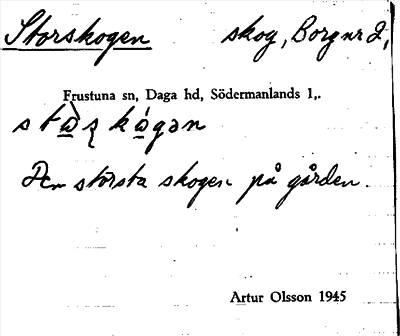 Storskogen skog, Borg nr 2,
Frustuna sn, Daga hd, Södermanlands l,.
Den största skogen på gården.
Artur Olsson 1945